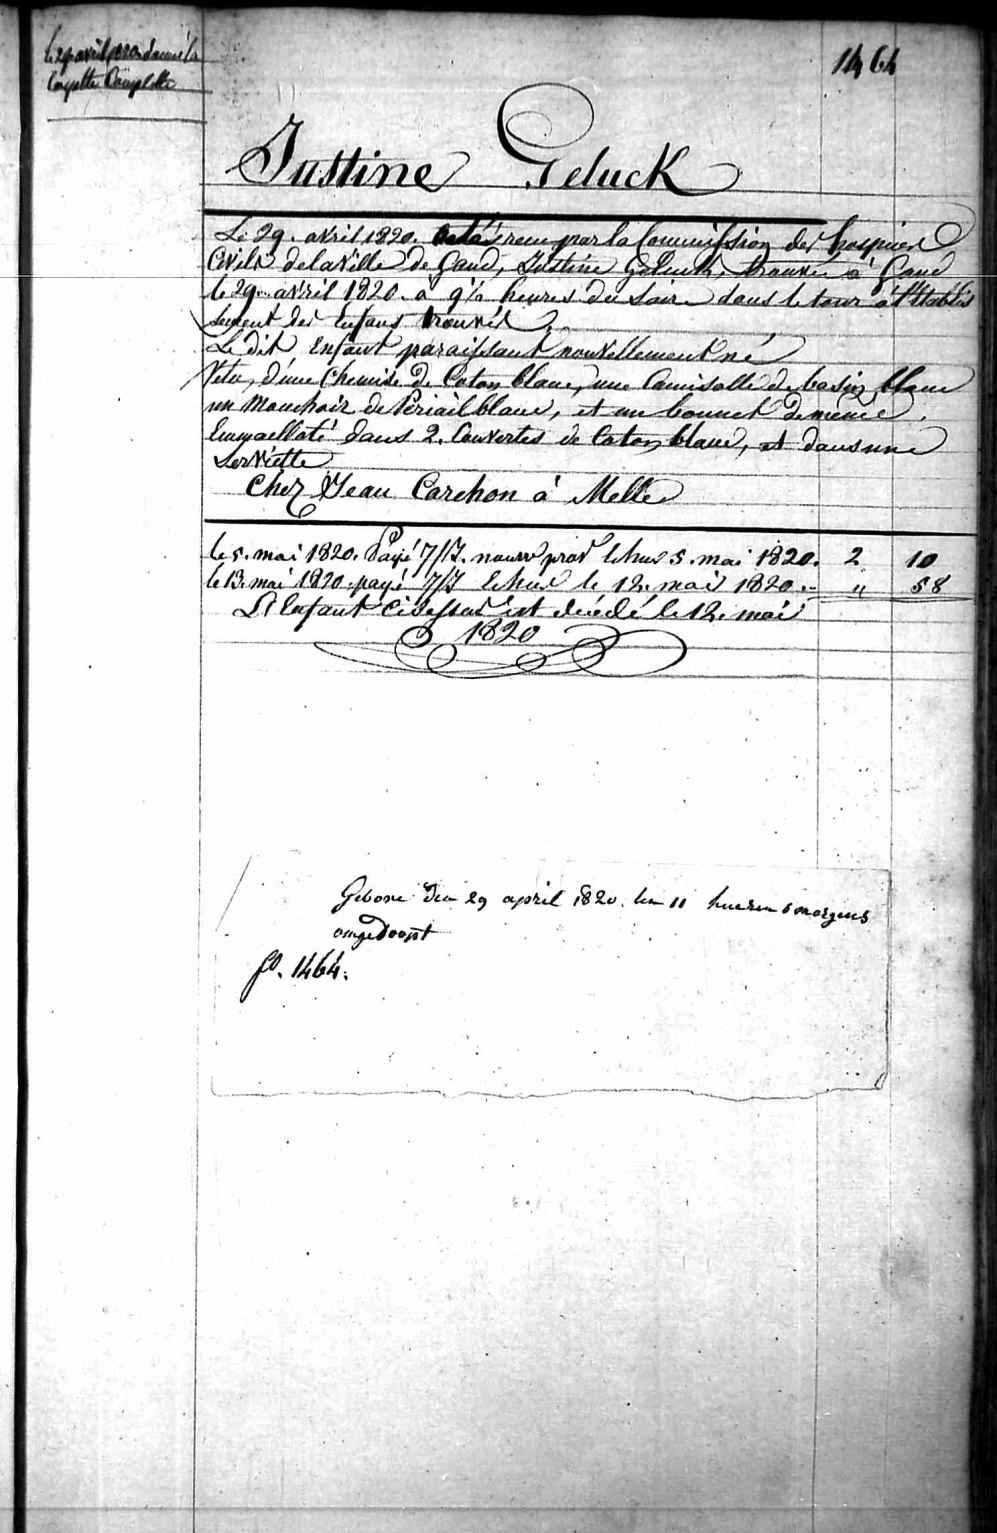 le 29 avril 1820 donné la
layette Complette
1464
Justine Geluck
Le 29. avril 1820. a été recu par la Commission des hospices
Civils de la Ville de Gand, Justine Geluck, trouvée à Gand
le 29. avril 1820. à 9½ heures du Soir dans le tour à l'Etablis
sement des Enfans trouvés.
Le dit Enfant paraissant nouvellement né
Vetu, d'une Chemise de Coton blanc, une Camisolle de basin blanc
un Mouchoir de blanc, et un bonnet de même,
Emmaelloté dans 2. Couvertes de Coton blanc, et dans une
Serviette
Chez Jean Carchon à Melle
le 5. mai 1820. Payé 7/J. nourr prov Echus 5. mai 1820. 2 10
le 13. mai 1820. payé 7/J Echus le 12. mai 1820. " 58
L'Enfant cidessus est décédé le 12. mai
1820
Gebore den 29 april 1820. ten 11 hueren smorgens
ongedoopt
fo. 1464.